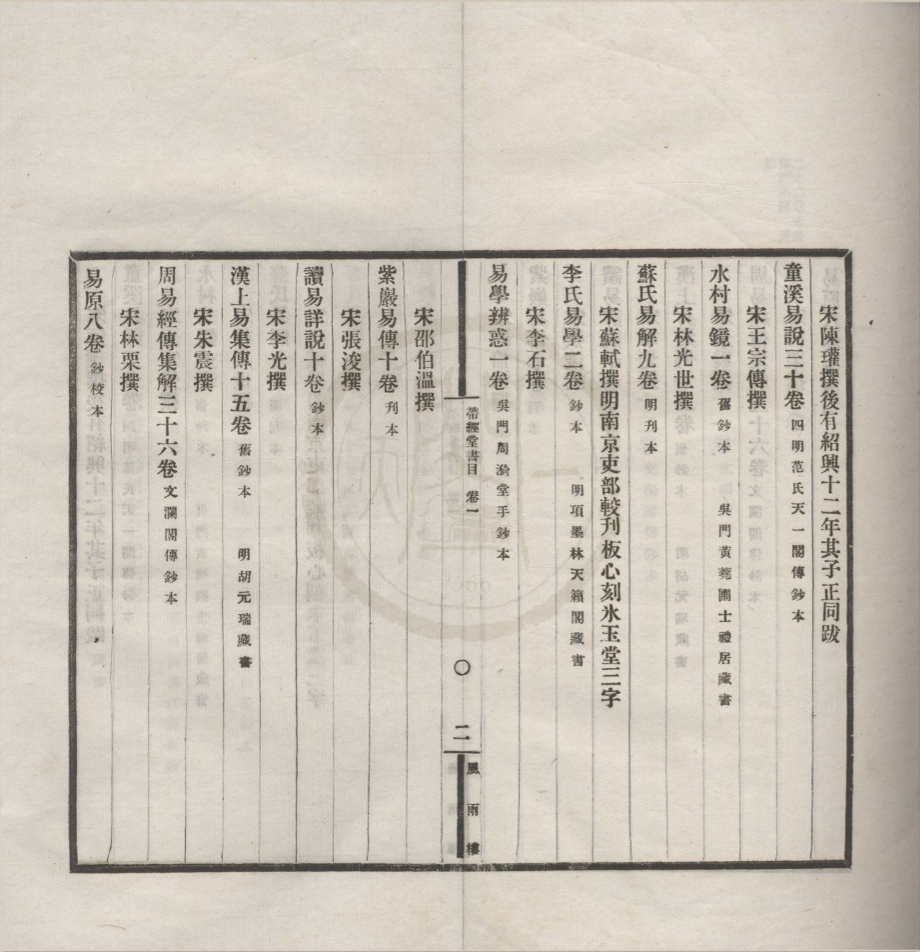 宋陳瓘撰後有紹興十二年其子正同跋
童溪易說三十卷 四明范氏天一閣傳鈔本
宋王宗傳撰
水村易鏡一卷 舊鈔本 吳門黃蕘圃士禮居藏書
宋林光世撰
蘇氏易解九卷 明刊本
宋蘇軾撰明南京吏部較刊板心刻氷玉堂三字
李氏易學二卷 鈔本 明項墨林天籟閣藏書
宋李石撰
易學辨惑一卷 吳門周漪堂手鈔本
帶經堂書目 卷一
二
風雨樓
宋邵伯溫撰
紫巖易傳十卷 刊本
宋張浚撰
讀易詳說十卷 鈔本
宋李光撰
漢上易集傳十五卷 舊鈔本 明胡元瑞藏書
宋朱震撰
周易經傳集解三十六卷 文瀾閣傳鈔本
宋林栗撰
易原八卷 鈔校本